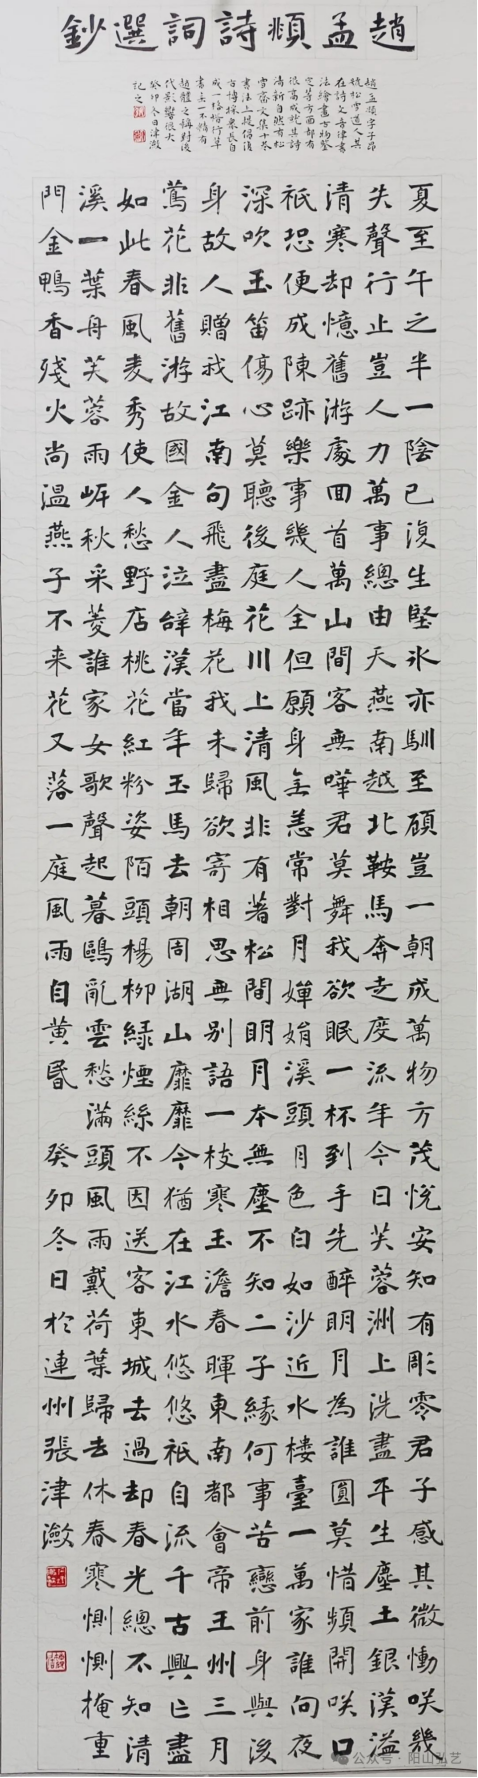 趙孟頫詩詞選鈔
趙孟頫字子昂
號松雪道人其
在詩文音律書
法繪畫古物鑒
定等方面都有
很高成就其詩
清新自然有松
雪齋文集十卷
書法上提倡復
古博採衆長自
成一格楷行草
書無一不精有
趙體之稱對後
代影響很大
癸卯冬日津瀲
記之
夏至午之半一陰已復生堅氷亦馴至碩豈一朝成萬物方茂悅安知有彫零君子感其微慟咲幾
失聲行止豈人力萬事總由天燕南越北鞍馬奔走度流年今日芙蓉洲上洗盡平生塵土銀漢溢
清寒却憶舊游處回首萬山間客無嘩君莫舞我欲眠一杯到手先醉明月為誰圓莫惜頻開咲口
祇恐便成陳跡樂事幾人全但願身無恙常對月嬋娟溪頭月色白如沙近水樓臺一萬家誰向夜
深吹玉笛傷心莫聽後庭花川上清風非有著松間明月本無塵不知二子緣何事苦戀前身與後
身故人贈我江南句飛盡梅花我未歸欲寄相思無別語一枝寒玉澹春暉東南都會帝王州三月
鶯花非舊游故國金人泣辭漢當年玉馬去朝周湖山靡靡今猶在江水悠悠祇自流千古興亡盡
如此春風麦秀使人愁野店桃花紅粉姿陌頭楊柳緑煙絲不因送客東城去過却春光總不知清
溪一葉舟芙蓉兩岸秋采菱誰家女歌聲起暮鷗亂雲愁滿頭風雨戴荷葉歸去休春寒惻惻掩重
門金鴨香殘火尚温燕子不來花又落一庭風雨自黄昏 癸卯冬日於連州張津瀲
公众号·阳山弘艺